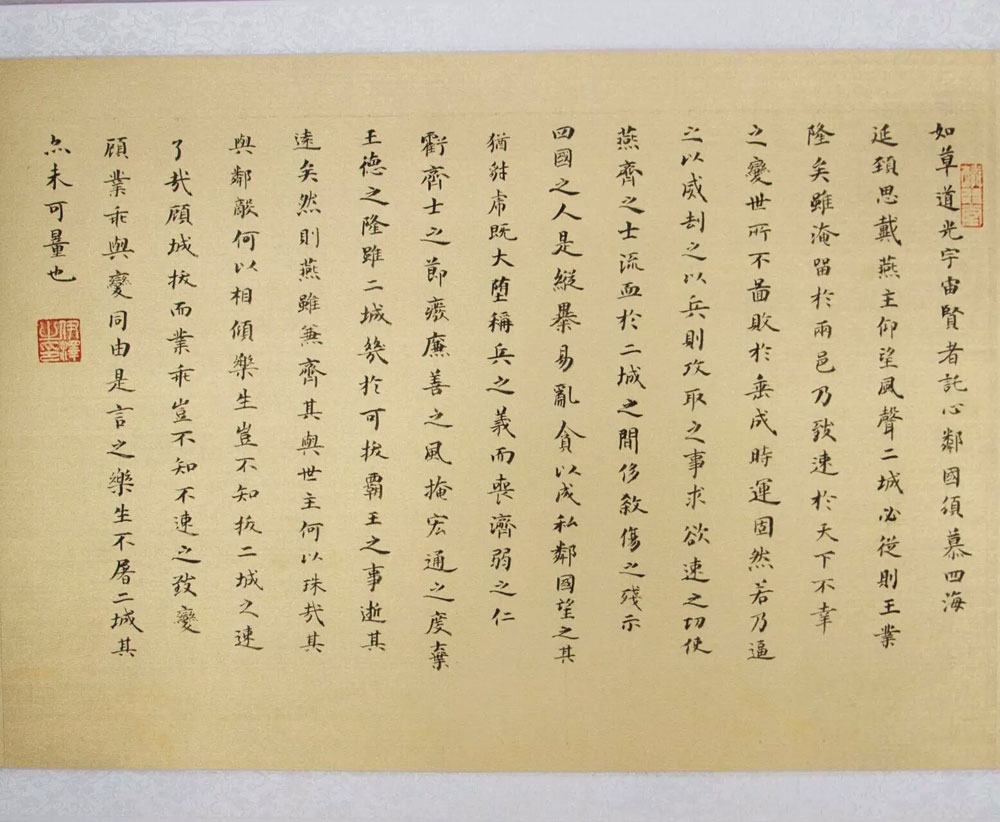 如草道光宇宙賢者託心鄰國須慕四海
延頸思戴燕主仰望風聲二城必從則王業
隆矣雖淹留於兩邑乃致速於天下不幸
之變世所不啚敗於垂成時運固然若乃逼
之以威刦之以兵則攻取之事求欲速之功使
燕齊之士流血於二城之間侈敘傷之殘示
四國之人是縱暴易亂貪以成私鄰國望之其
猶豺虎既大墮稱兵之義而喪濟弱之仁
虧齊士之節癈廉善之風掩宏通之度棄
王德之隆雖二城幾於可拔霸王之事逝其
遠矣然則燕雖兼齊其與世主何以珠哉其
與鄰敵何以相傾樂生豈不知拔二城之速
了哉顧城拔而業乖豈不知不速之致變
顧業乖與變同由是言之樂生不屠二城其
亦未可量也
伊澤之印